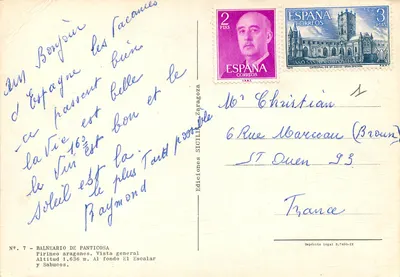 un Bonjour
d'Espagne les Vacances
ce passent bien
la Vie est belle
le Vin 16° est bon et le
Soleil est la.
le plus Tard possible
Raymond
Nº. 7 - BALNEARIO DE PANTICOSA
Pirineo aragones. Vista general
Altitud 1.636 m. Al fondo El Escalar
y Sabocos.
Ediciones SICILIA Zaragoza
2
PTAS
ESPAÑA
CORREOS
ESPAÑA
CORREOS
3
PTAS
Mr Christian
6 Rue Marceau (Broun)
ST Ouen 93
France